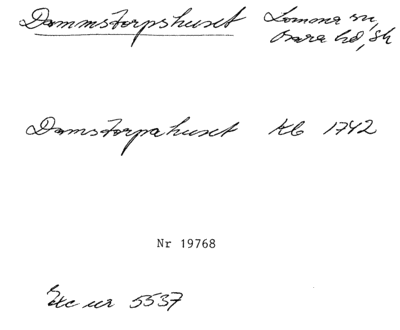 Dammstorpshuset Lomma sn,
Bara hd, Sk
Damstorpahuset Kb 1742
Nr 19768
Exc ur 5537